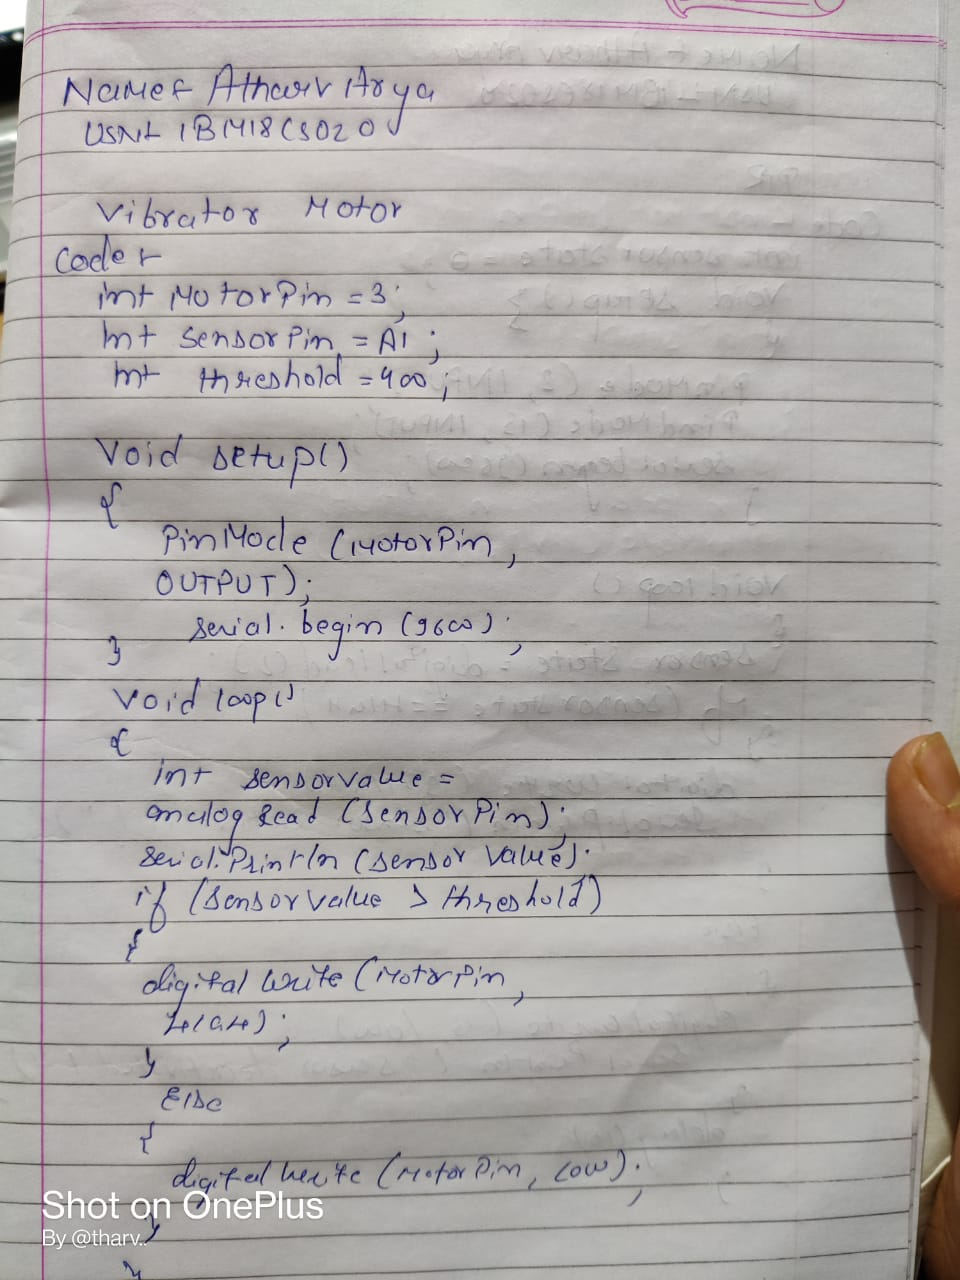 Name: Atharv Arya
USN: 1BM18CS020
Vibrator Motor
Code:
int MotorPin = 3;
int SensorPin = A1;
int threshold = 400;
Void setup()
{
PinMode (MotorPin,
OUTPUT);
serial.begin (9600);
}
Void loop()
{
int sensorvalue =
analog Read (SensorPin);
serial.Println (sensor value);
if (Sensorvalue > threshold)
{
digital write (MotorPin,
HIGH);
}
Else
{
digital write (MotorPin, LOW);
}
}
Shot on OnePlus
By @tharv..